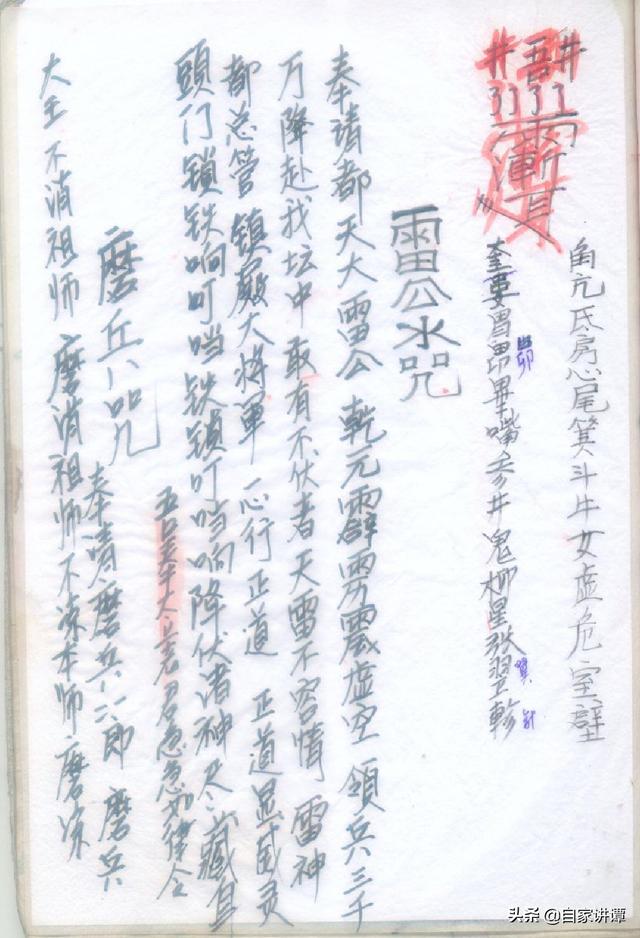 角亢氐房心尾箕斗牛女虚危室壁
奎娄胃昴畢嘴参井鬼柳星张翌軫
雷公水咒
奉请都天大雷公 乾元霹雳震虚空 领兵三千
万降赴我坛中 敢有不伏者 天雷不容情 雷神
都总管 镇殿大将軍 一心行正道 正道显威灵
頭门锁铁响叮当 铁锁叮当响 降伏诸神尽藏身
太上老君急急如律令
磨兵咒 奉请磨兵六郎 磨兵
大王 不消祖师 磨消祖师 不凉本师 磨凉
头条 @自家讲谭